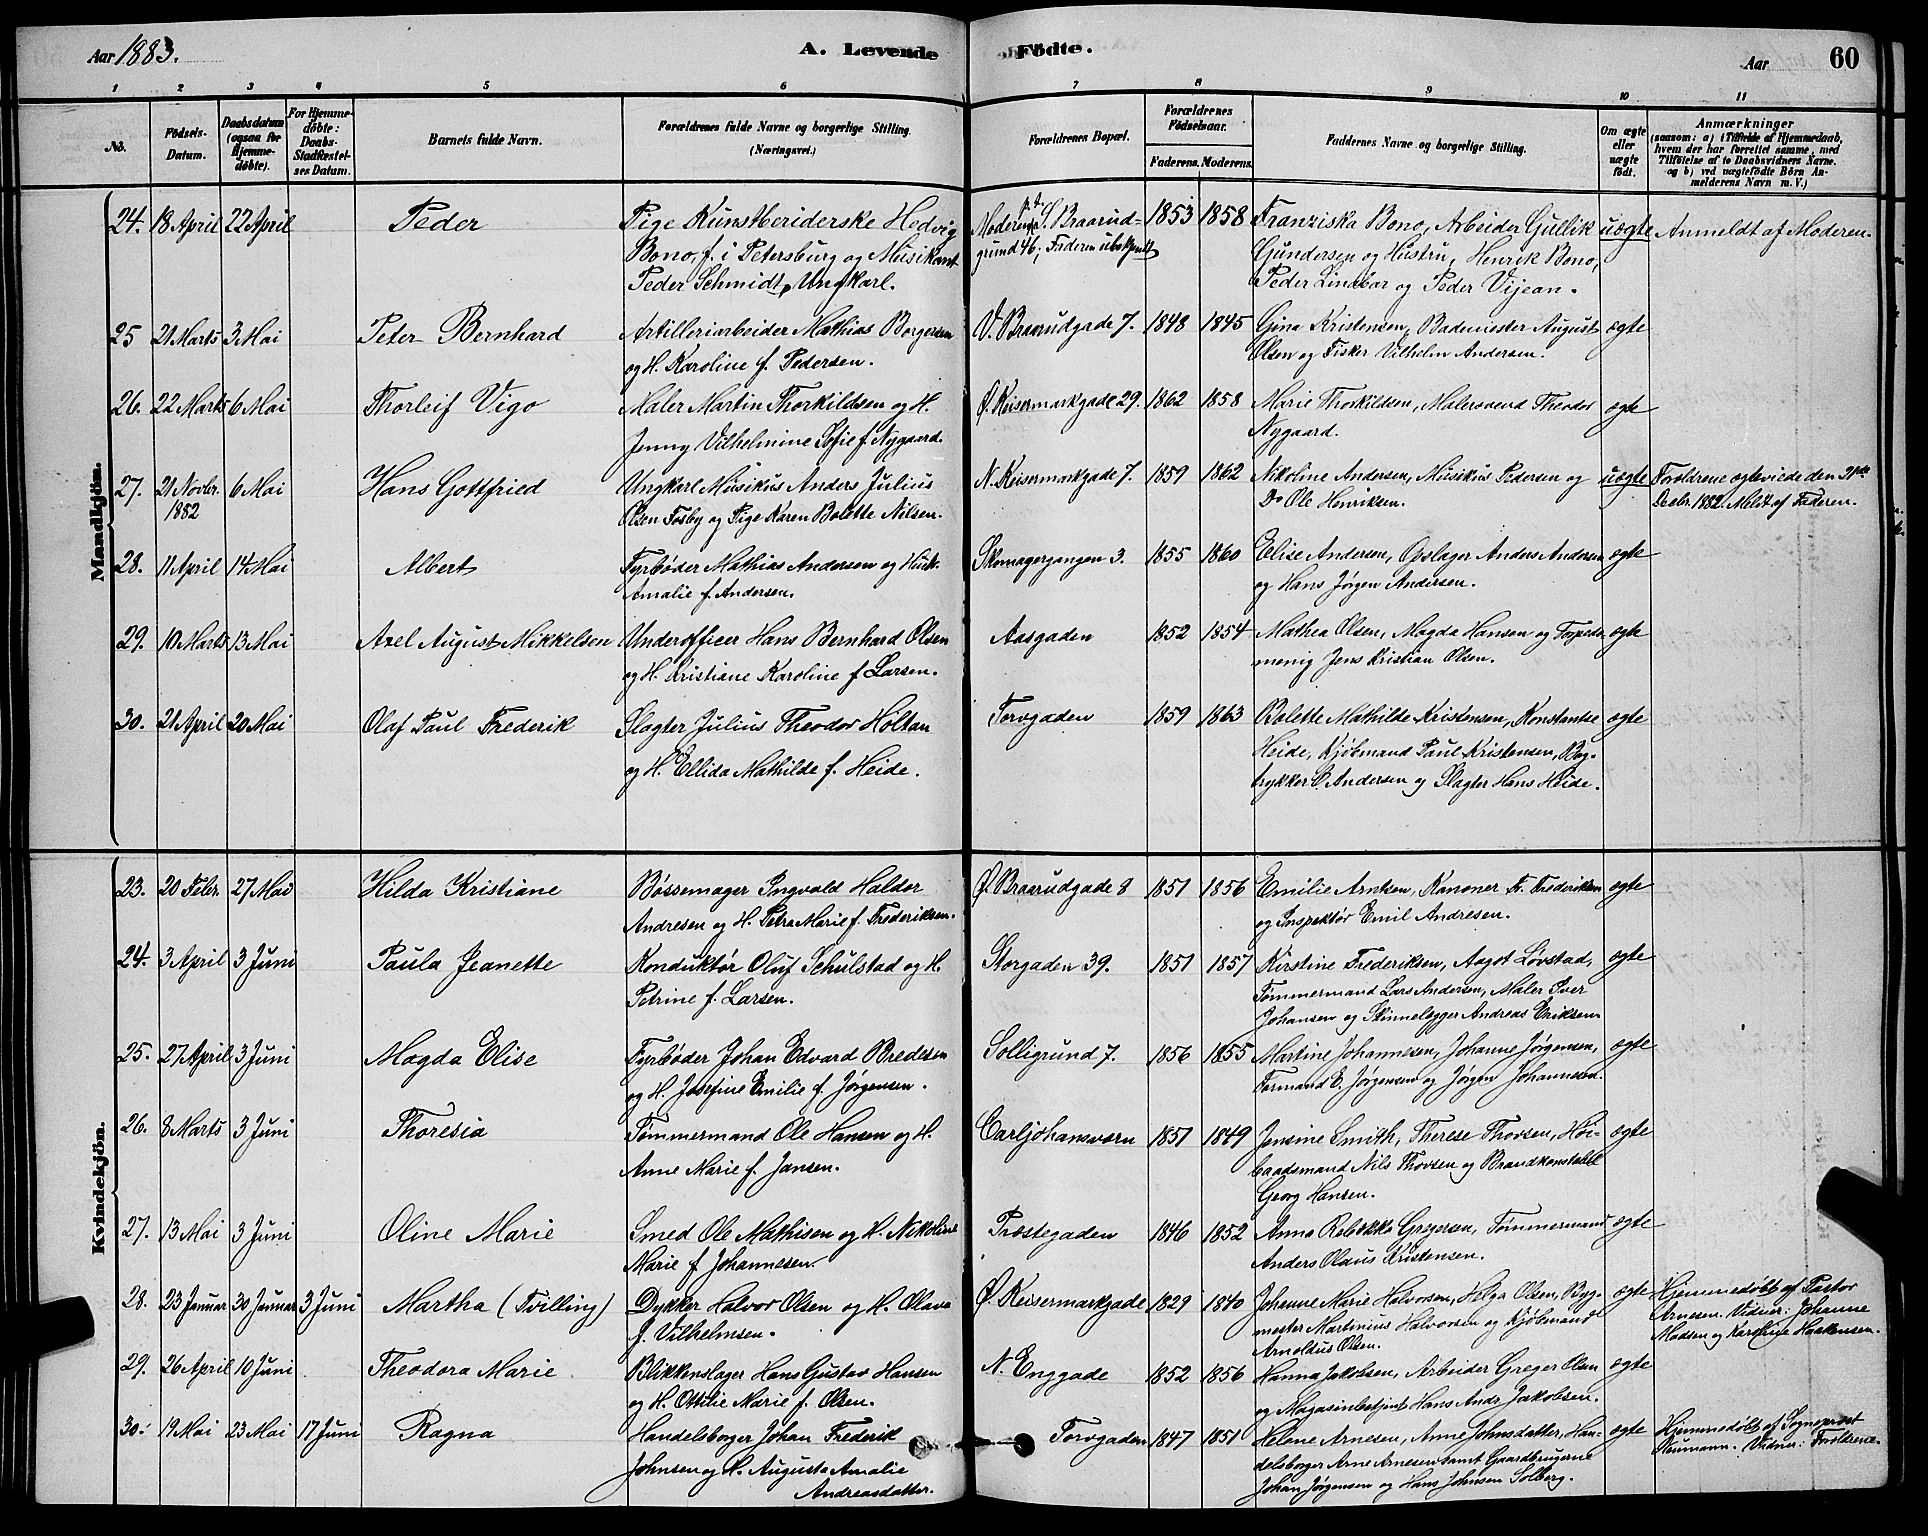 Aar 1883. A. Levende Födte. Aar 60
1 2 3 4 5 6 7 8 9 10 11
No. Födsels-Datum. Daabsdatum (ogsaa for Hjemmedøbte). For Hjemmedøbte: Daabs-Stadfæstelses Datum. Barnets fulde Navn. Forældrenes fulde Navne og borgerlige Stilling. (Næringsvei.) Forældrenes Bopæl. Forældrenes Födselsaar. Faderens. Moderens. Faddernes Navne og borgerlige Stilling. Om ægte eller uægte født. Anmærkninger (saasom: a) i Tilfælde af Hjemmedaab, hvem der har forrettet samme, med Tilføielse af to Daabsvidners Navne. og b) ved uægtefödte Börn Anmelderens Navn m. V.)
Mandkjön.
24. 18 April 22 April Peder Pige Kunstberiderske Hedvig Moderens p.t. S. Braarud- 1853 1858 Franziska Bono, Arbeider Gullik uægte Anmeldt af Moderen.
Bono, f. i Petersburg og Musikant grund 46, Faderen ubekjendt Gundersen og Hustru, Henrik Bono,
Peder Schmidt, Ungkarl. Peder Lindbar og Peder Vijean.
25 21 Marts 3 Mai Peter Bernhard Artilleriarbeider Mathias Borgersen V. Braarudgade 7. 1848 1845 Gina Kristensen, Bademester August ægte
og H. Karoline f. Pedersen. Olsen og Fisker Vilhelm Andersen.
26. 22 Marts 6 Mai Thorleif Vigo Maler Martin Thorkildsen og H. Ø. Keisermarkgade 29. 1862 1858 Marie Thorkildsen, Malersvend Theodor ægte
Jenny Vilhelmine Sofie f. Nygaard. Nygaard.
27. 21 Novbr. 6 Mai Hans Gottfried Ungkarl Musikus Anders Julius N. Keisermarkgade 7. 1859 1862 Nikoline Andersen, Musikus Pedersen og uægte Forældrene ægteviede den 21de
1882 Olsen Fosby og Pige Karen Bolette Nilsen. Do Ole Henriksen. Decbr. 1882. Meldt af Faderen.
28. 11 April 14 Mai Albert Fyrbøder Mathias Andersen og Hust. Skomagergangen 3. 1855 1860 Elise Andersen, Opslager Anders Andersen ægte
Amalie f. Andersen. og Hans Jørgen Andersen.
29. 10 Marts 13 Mai Axel August Mikkelsen Underofficer Hans Bernhard Olsen Aasgaden 1852 1854 Mathea Olsen, Magda Hansen og Torpedo- ægte
og H. Kristiane Karoline f. Larsen. menig Jens Kristian Olsen.
30. 21 April 20 Mai Olaf Paul Frederik Slagter Julius Theodor Holtan Torvgaden 1859 1863 Bolette Mathilde Kristensen, Konstantse ægte
og H. Ellida Mathilde f. Heide. Heide, Kjøbmand Paul Kristensen, Bog-
trykker C. Andersen og Slagter Hans Heide.
Kvindekjön.
23. 20 Febr. 27 Mai Hilda Kristiane Bøssemager Ingvald Haldor Ø. Braarudgade 8 1851 1856 Emilie Arntsen, Kanoner Fr. Frederiksen ægte
Andresen og H. Petra Marie f. Frederiksen. og Inspektør Emil Andresen.
24. 3 April 3 Juni Paula Jeanette Konduktør Oluf Schulstad og H. Storgaden 39. 1851 1857 Kirstine Frederiksen, Aagot Løvstad, ægte
Petrine f. Larsen. Tømmermand Lars Andersen, Maler Iver
Johansen og Skinnelægger Andreas Eriksen
25. 27 April 3 Juni Magda Elise Fyrbøder Johan Edvard Bredesen Solligrund 7. 1856 1855 Martine Johannesen, Johanne Jørgensen, ægte
og H. Josefine Emilie f. Jørgensen. Formand E. Jørgensen og Jørgen Johannesen.
26. 8 Marts 3 Juni Thoresia Tømmermand Ole Hansen og H. Carljohansværn 1851 1849 Jensine Smith, Therese Thovsen, Høi- ægte
Anne Marie f. Jansen. baadsmand Nils Thovsen og Brandkonstabel
Georg Hansen.
27. 13 Mai 3 Juni Oline Marie Smed Ole Mathisen og H. Nikoline Præstegaden 1846 1852 Anna Rebekka Gregersen, Tømmermand ægte
Marie f. Johannesen. Anders Olaus Kristensen.
28. 23 Januar 30 Januar 3 Juni Martha (Tvilling) Dykker Halvor Olsen og H. Olava Ø. Keisermarkgade 1829 1840 Johanne Marie Halvorsen, Helga Olsen, Byg- ægte Hjemmedøbt af Pastor
f. Vilhelmsen. mester Martinius Halvorsen og Kjøbmand Arnesen. Vidner: Johanne
Arnoldus Olsen. Madsen og Karoline Haakensen.
29. 26 April 10 Juni Theodora Marie Blikkenslager Hans Gustav Hansen N. Enggade 1852 1856 Hanna Jakobsen, Arbeider Greger Olsen ægte
og H. Ottilie Marie f. Olsen. og Magasinbetjent Hans Andr. Jakobsen.
30. 19 Mai 23 Mai 17 Juni Ragna Handelsborger Johan Frederik Torvgaden 1847 1851 Helene Arnesen, Anne Johnsdatter, Han- ægte Hjemmedøbt af Sogneprest
Johnsen og H. Augusta Amalie delsborger Arne Arnesen samt Gaardbrugerne Neumann. Vidner: Forældrene.
Andreasdatter. Johan Jørgensen og Hans Johnsen Solberg.